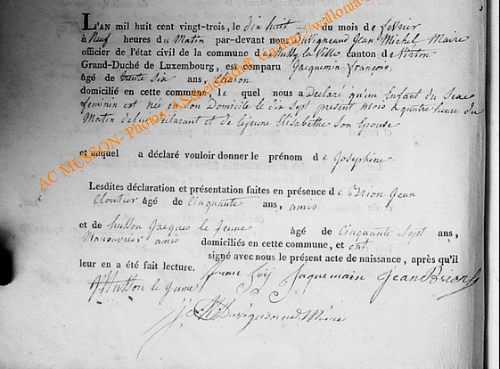 L'AN mil huit cent vingt-trois, le dix huit du mois de fevrier
à Neuf heures du Matin par-devant nous Jean Michel Maire
officier de l'état civil de la commune de Mussy la Ville canton de Virton
Grand-Duché de Luxembourg, est comparu Jacquemin François
âgé de trente six ans, Charon
domicilié en cette commune, le quel nous a Declaré qu'un Enfant du Sexe
feminin est née en son Domicile le dix Sept present Mois a quatre heure du
Matin de lui Declarant et de lejeune Elisabethe Son Epouse
et auquel a déclaré vouloir donner le prénom de Josephine
Lesdites déclaration et présentation faites en présence de Brion Jean
Cloutier âgé de Cinquante ans, amis
et de husson Jacques le Jeune âgé de Cinquante Sept ans,
Manouvrier amis domiciliés en cette commune, et ont
signé avec nous le présent acte de naissance, après qu'il
leur en a été fait lecture.
franSoy Jaquemain Jean Brion
J Husson le Jeune
Maire
AC MUSSON- Photos